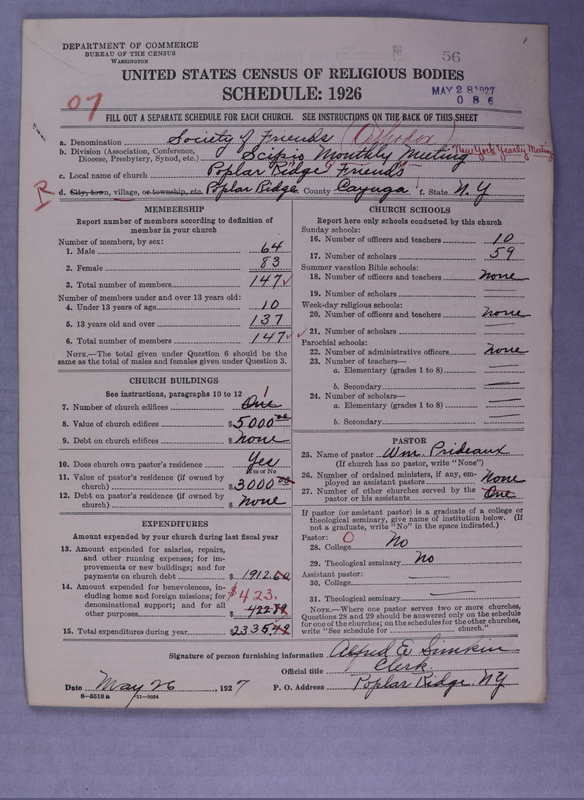 DEPARTMENT OF COMMERCE
BUREAU OF THE CENSUS
WASHINGTON
56
MAY 28 1927
086
UNITED STATES CENSUS OF RELIGIOUS BODIES
SCHEDULE: 1926
07
FILL OUT A SEPARATE SCHEDULE FOR EACH CHURCH. SEE INSTRUCTIONS ON THE BACK OF THIS SHEET
a. Denomination Society of Friends (Orthodox)
b. Division (Association, Conference, Diocese, Presbytery, Synod, etc.) Scipio Monthly Meeting New York Yearly Meeting
c. Local name of church Poplar Ridge Friends
R d. City, town, village, or township, etc. Poplar Ridge County Cayuga f. State N. Y
MEMBERSHIP
Report number of members according to definition of member in your church
Number of members, by sex:
1. Male 64
2. Female 83
3. Total number of members 147
Number of members under and over 13 years old:
4. Under 13 years of age 10
5. 13 years old and over 137
6. Total number of members 147
NOTE.—The total given under Question 6 should be the same as the total of males and females given under Question 3.
CHURCH BUILDINGS
See instructions, paragraphs 10 to 12
7. Number of church edifices One 1
8. Value of church edifices $5000 00
9. Debt on church edifices $ none
10. Does church own pastor's residence Yes
Yes or No
11. Value of pastor's residence (if owned by church) $3000 00
12. Debt on pastor's residence (if owned by church) $ none
EXPENDITURES
Amount expended by your church during last fiscal year
13. Amount expended for salaries, repairs, and other running expenses; for improvements or new buildings; and for payments on church debt $ 1912.60
14. Amount expended for benevolences, including home and foreign missions; for denominational support; and for all other purposes $423. 422 89
15. Total expenditures during year $2335 49
CHURCH SCHOOLS
Report here only schools conducted by this church
Sunday schools:
16. Number of officers and teachers 10
17. Number of scholars 59
Summer vacation Bible schools:
18. Number of officers and teachers none
19. Number of scholars —
Week-day religious schools:
20. Number of officers and teachers none
21. Number of scholars —
Parochial schools:
22. Number of administrative officers none
23. Number of teachers—
a. Elementary (grades 1 to 8) —
b. Secondary —
24. Number of scholars—
a. Elementary (grades 1 to 8) —
b. Secondary —
PASTOR
25. Name of pastor Wm. Prideaux
(If church has no pastor, write "None")
26. Number of ordained ministers, if any, employed as assistant pastors None
27. Number of other churches served by the pastor or his assistants One
If pastor (or assistant pastor) is a graduate of a college or theological seminary, give name of institution below. (If not a graduate, write "No" in the space indicated.)
Pastor: O
28. College No
29. Theological seminary No
Assistant pastor: —
30. College
31. Theological seminary —
NOTE.—Where one pastor serves two or more churches, Questions 28 and 29 should be answered only on the schedule for one of the churches; on the schedules for the other churches, write "See schedule for ........ church."
Signature of person furnishing information Alfred E Simkin
Official title Clerk
Date May 26, 1927 P. O. Address Poplar Ridge. NY
8—5518 a 11—9034